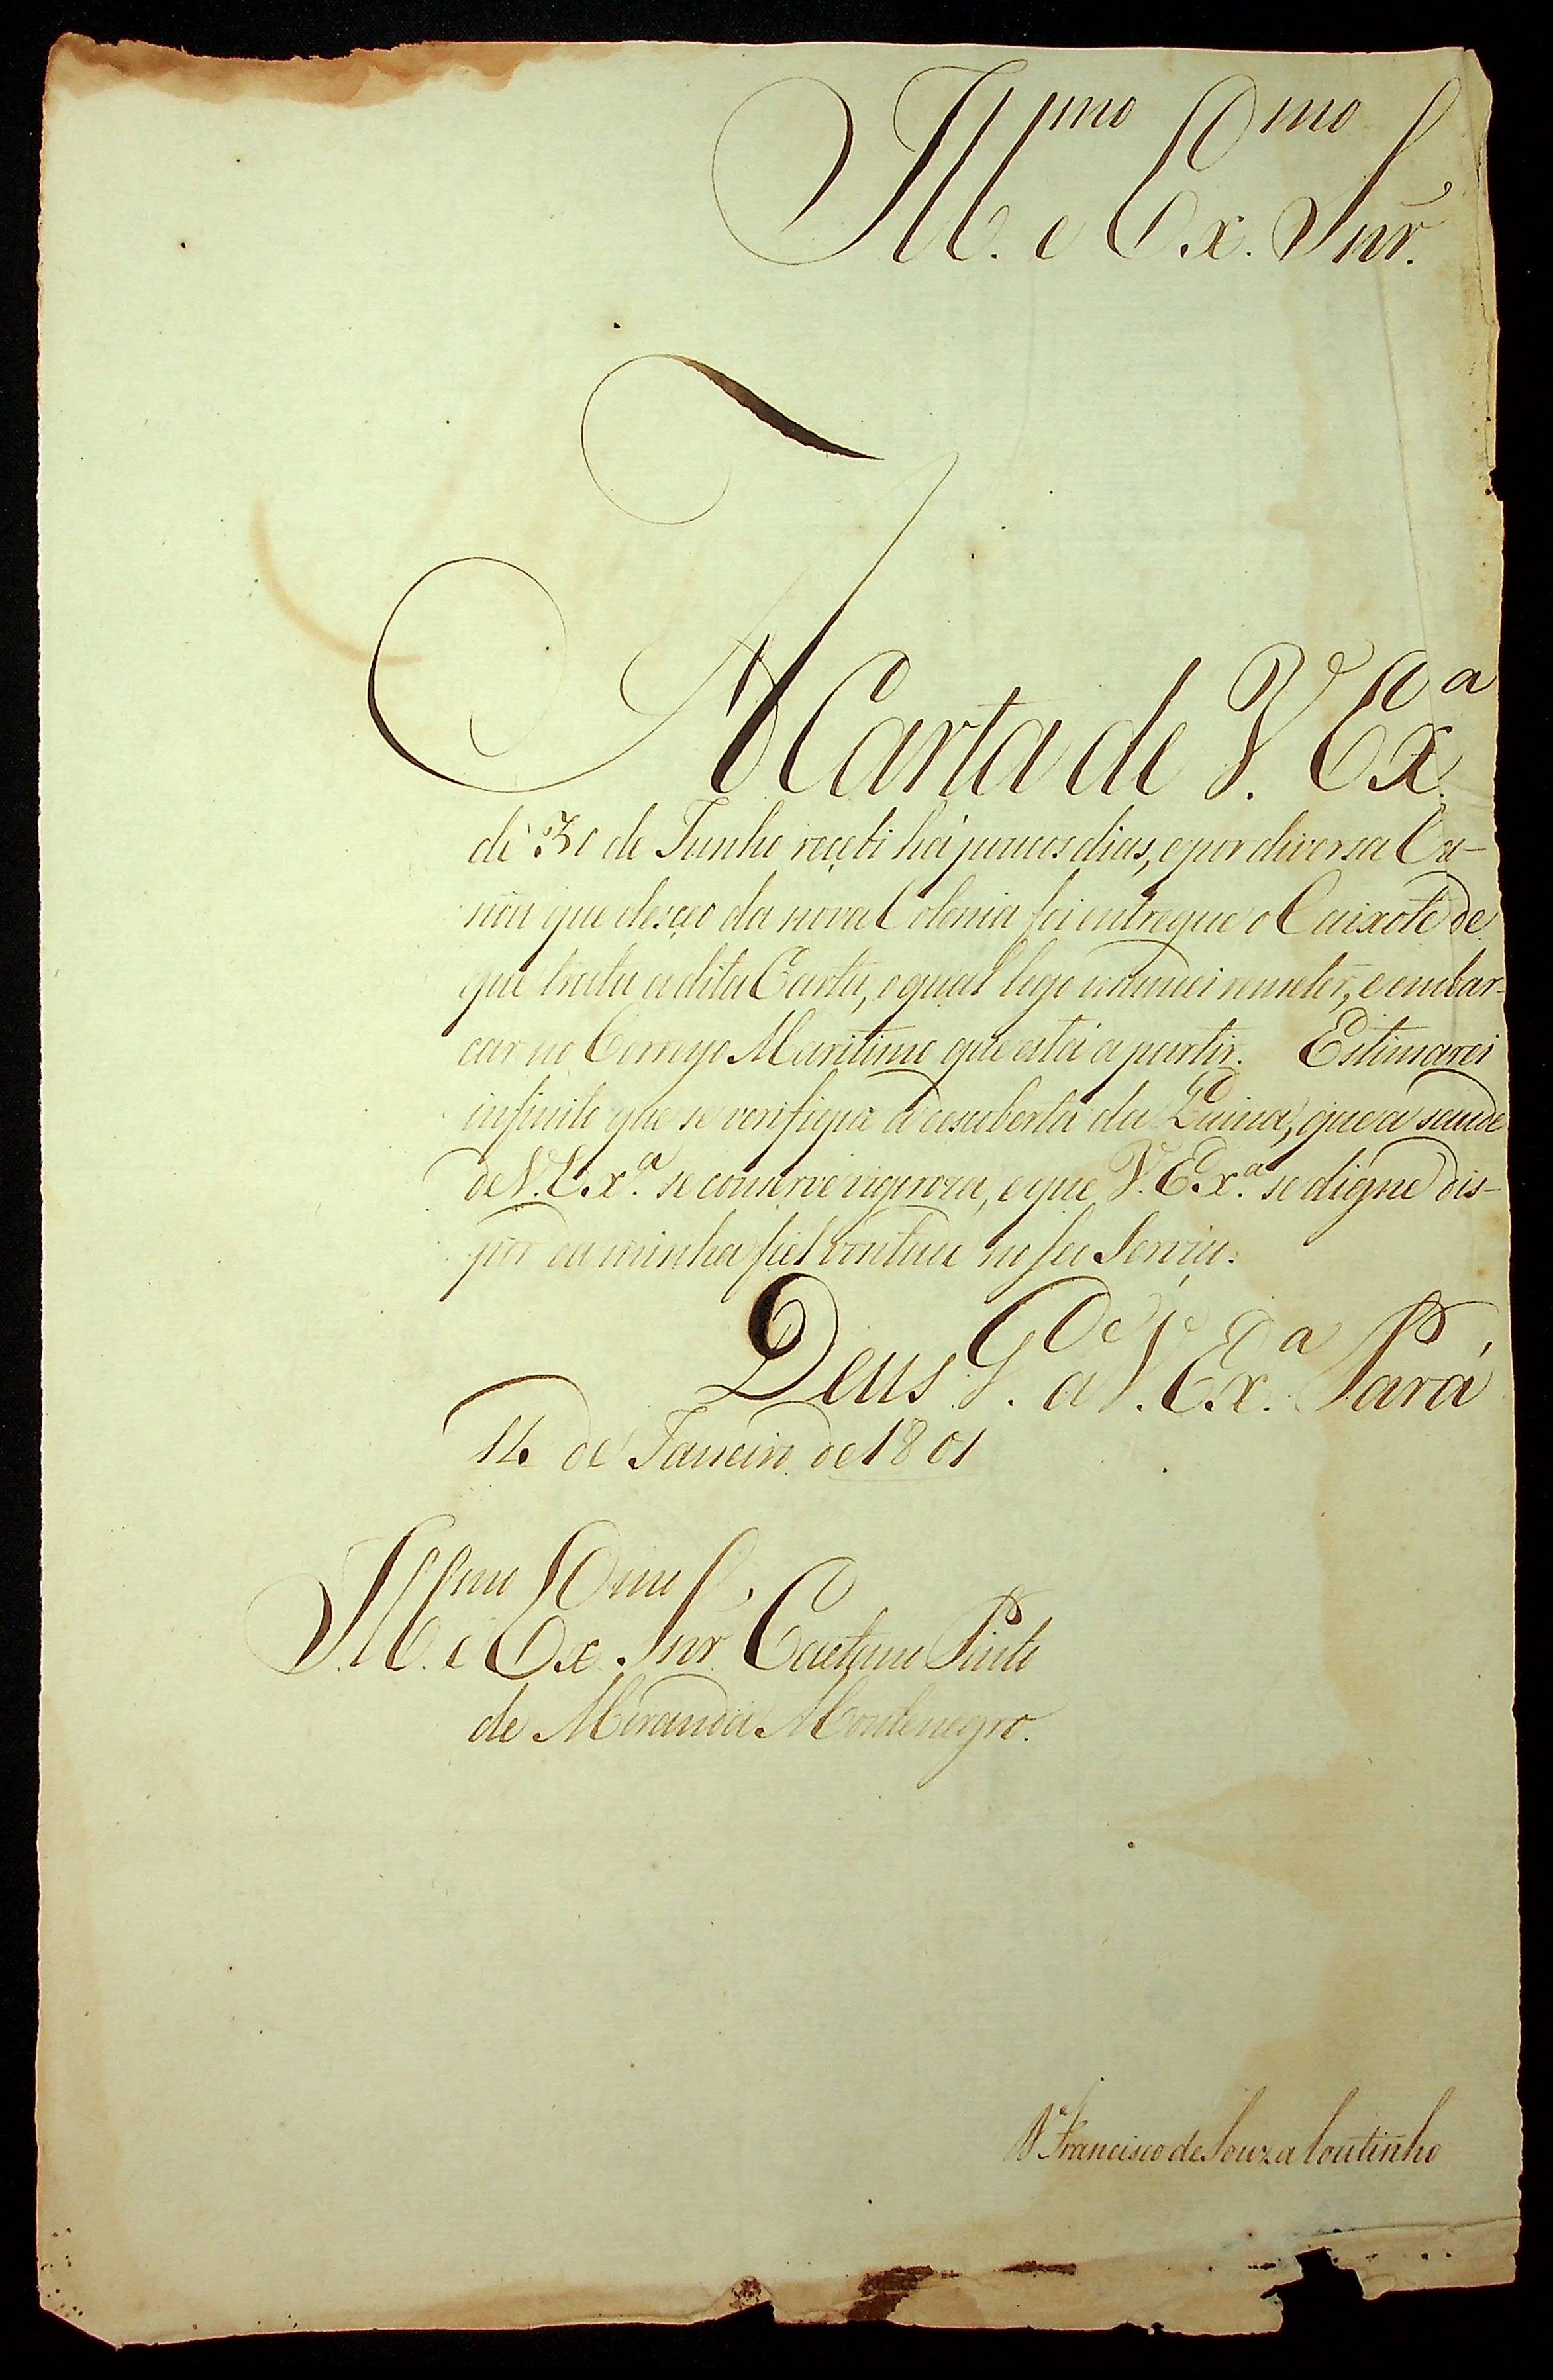 Ill.mo e Ex.mo Snr.
A Carta de V. Ex.a
de 30 de Junho recebi há poucos dias, e por diversa Ca-
nôa que desceo da nova Colonia foi entregue o Caixote de
que trata a dita Carta, o qual logo mandei remeter, e embar-
car no Correyo Maritimo que está a partir. Estimarei
infinito que se verifique a descoberta da Quina, que a saude
de V. Ex.a se conserve vigoroza, e que V. Ex.a se digne dis-
por da minha fiel vontade no seu Serviço.
Deus G.de a V. Ex.a Pará
14 de Janeiro de 1801
Ill.mo e Ex.mo Snr. Caetano Pinto
de Miranda Montenegro.
D. Francisco de Souza Coutinho